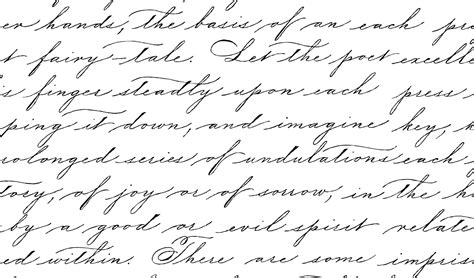 er hands, the basis of an each pre
t fairy-tale. Let the poet excelle
is finger steadily upon each press
ping it down, and imagine key, k
olonged series of undulations each
tory, of joy or of sorrow, in the h
by a good or evil spirit relate
ed within. There are some impris